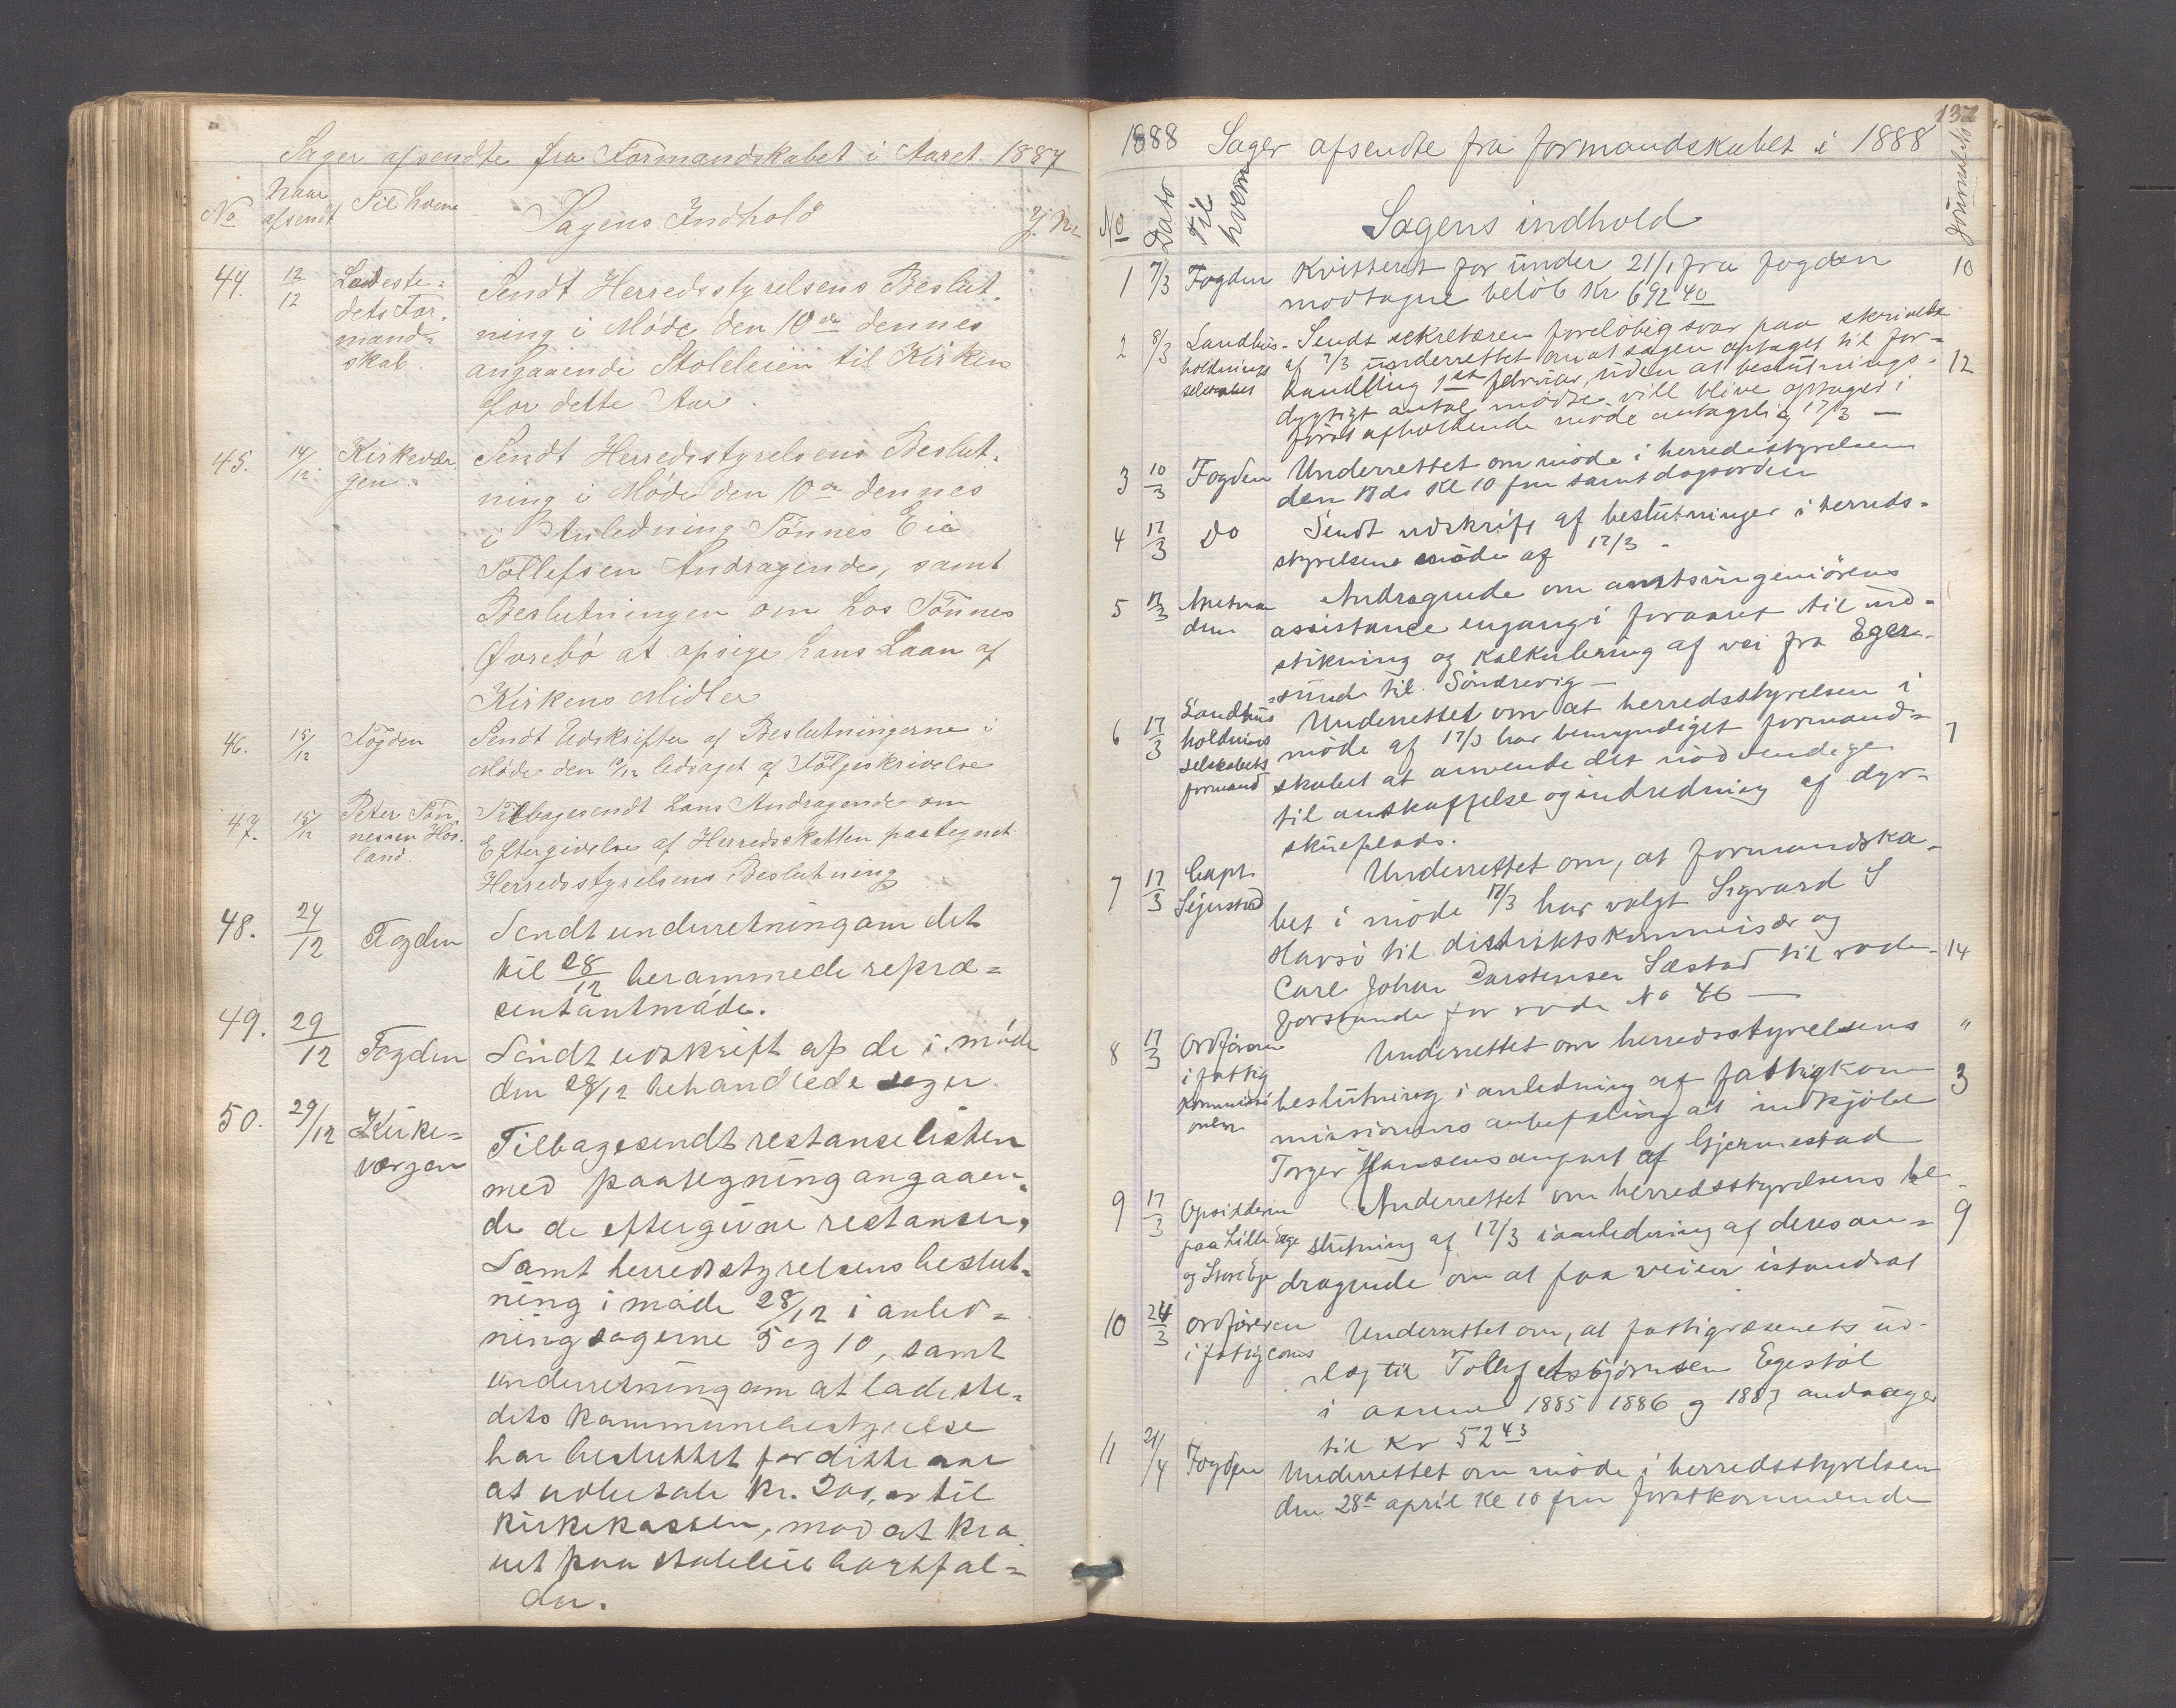 Sager afsendte fra Formandskabet i Aaret 1887
No
Naar afsendt
Til hvem
Sagens Indhold
J. No
44. 12/12 Ladeste-
dets For-
mand-
skab.
Sendt Herredsstyrelsens Beslut-
ning i Møde den 10de dennes
angaaende Stoleleien til Kirken
for dette Aar.
45. 14/12. Kirkevær-
gen.
Sendt Herredsstyrelsens Beslut-
ning i Møde den 10de dennes
i Anledning Tønnes Eie
Tollefsen Andragende, samt
Beslutningen om hos Tønnes
Øvrebø at opsige hans Laan af
Kirkens Midler
46. 15/12 Fogden
Sendt Udskrifter af Beslutningerne i
Møde den 10/12 ledsaget af Følgeskrivelse
47. 15/12 Peter Tøn-
nessen Hov-
land.
Tilbagesendt hans Andragende om
Eftergivelse af Herredsskatten paategnet
Herredsstyrelsens Beslutning
48. 24/12 Fogden
Sendt underretning om det
til 28/12 berammede repræ=
sentantmøde.
49. 29/12 Fogden
Sendt udskrift af de i møde
den 28/12 behandlede sager.
50. 29/12 Kirke=
værgen
Tilbagesendt restanselisten
med paategning angaaen=
de de eftergivne restanser,
Samt herredsstyrelsens beslut=
ning i møde 28/12 i anled=
ning sagerne 5 og 10, samt
underretning om at ladeste=
dets kommunebestyrelse
har besluttet for dette aar
at udbetale Kr. 200, er til
kirkekassen, mod at kra
vet paa stoleleie bortfal=
der.
132
1888 Sager afsendte fra formandskabet i 1888
No
Dato
Til hvem
Sagens indhold
Journal No
1 7/3 Fogden Kvitteret for under 21/1 fra fogden 10
modtagne beløb Kr 692 40
2 8/3 Landhus-
holdnings
selskabet
Sendt sekretæren foreløbig svar paa skrivelse
af 7/3 underrettet om at sagen optaget til for-
handling 1st februar, uden at beslutnings- 12
dygtigt antal mødte vill blive optaget i
først afholdende møde antagelig 17/3 —
3 10/3 Fogden Underrettet om møde i herredsstyrelsen
den 17 ds Kl 10 fm samt dagsorden
4 17/3 Do Sendt udskrift af beslutninger i herreds-
styrelsens møde af 17/3 -
5 17/3 Amtman
den
Andragende om amtsingeniørens
assistance engang i foraaret til ud-
stikning og kalkulering af vei fra Eger-
sund til Søndrevig —
6 17/3 Landhus
holdnins
selskabets
formand
Underrettet om at herredsstyrelsen i
møde af 17/3 har bemyndiget formand= 7
skabet at anvende det nødvendige
til anskaffelse og indredning af dyr-
skueplads.
7 17/3 Capt.
Sejersted
Underrettet om, at formandska-
bet i møde 17/3 har valgt Sigvard S
Havsø til distriktskommisær og
Carl Johan Carstensen Sæstad til rode- 14
forstander for rode No 46 —
8 17/3 Ordføreren
i fattig
kommissi
onen
Underrettet om herredsstyrelsens "
beslutning i anledning af fattigkom 3
missionens anbefaling at indkjøbe
Torger Hansens anpart af Gjermestad
9 17/3 Opsidderne
paa Lille Ege
og Store Ege
Underrettet om herredsstyrelsens be-
slutning af 17/3 i anledning af deres an= 9
dragende om at faa veien istandsat
10 24/3 Ordføreren
i fatigcoms
Underrettet om, at fattigvæsenets ud-
læg til Tollef Asbjørnsen Egestøl
i aarene 1885 1886 og 1887 andrager
til Kr 52 43
11 21/4 Fogden Underrettet om møde i herredsstyrelsen
den 28de april Kl 10 fm førstkommende